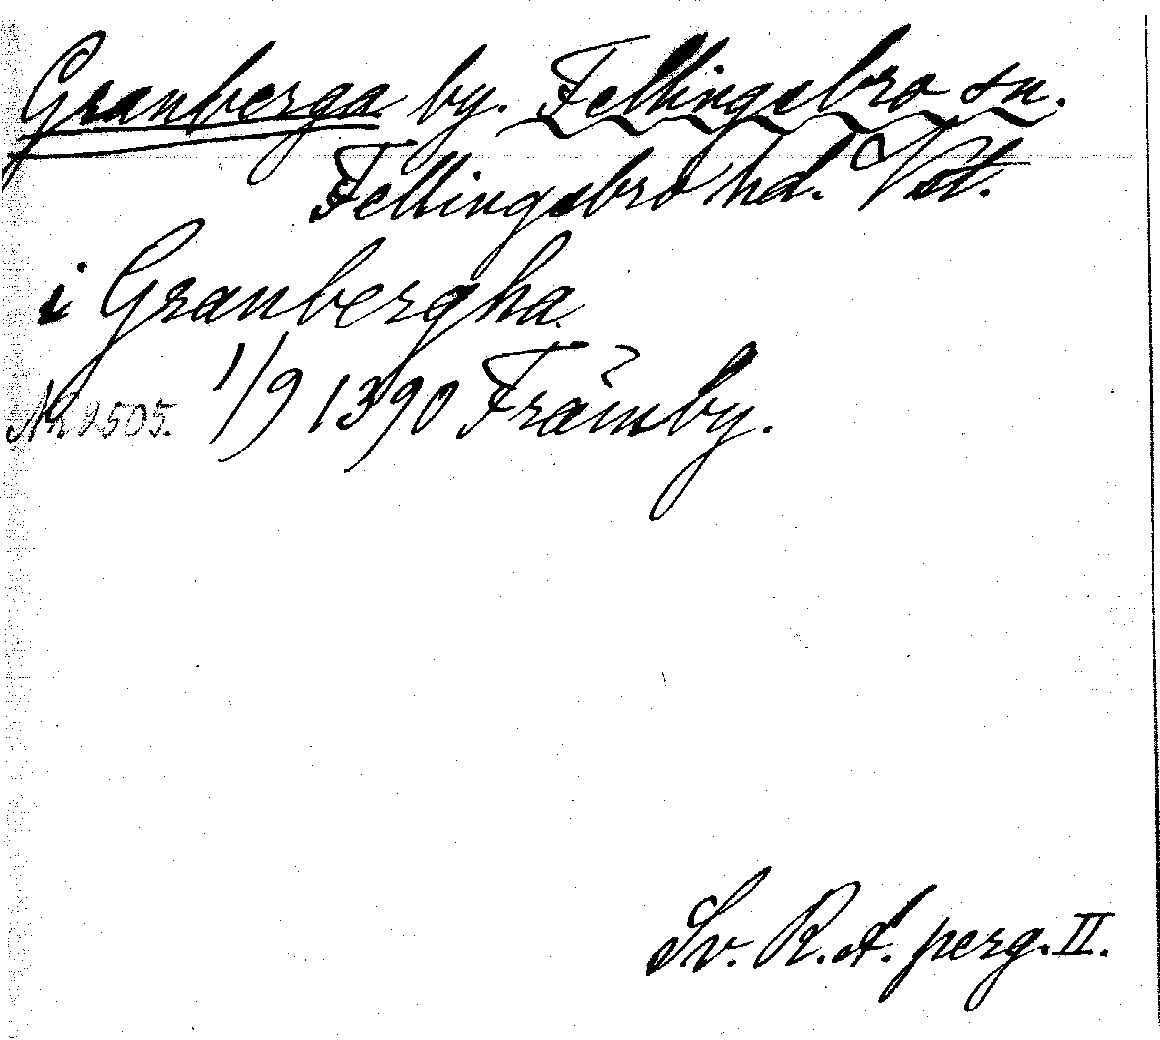 Granberga by. Fellingsbro sn.
Fellingsbro hd. Vstt.
i Granbergha
Nr 2505. 1/9 1390 Främby.
Sv. R.A. perg. II.